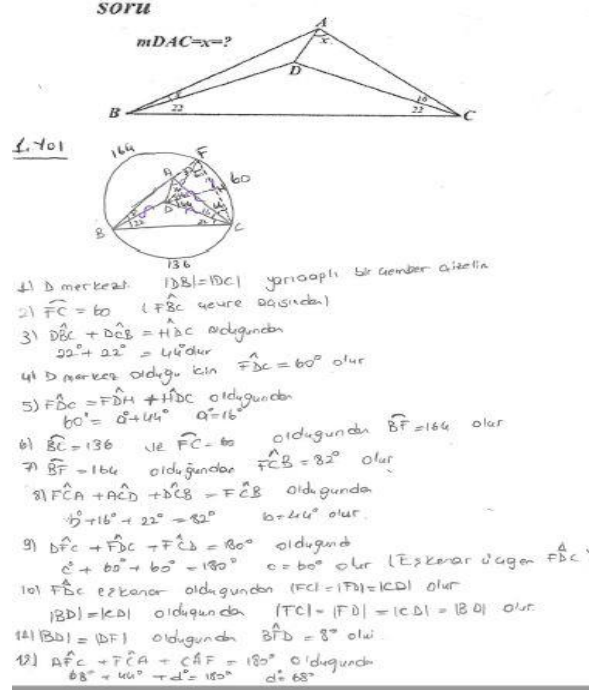 soru
mDAC=x=?
A
x
D
8
22
B
16
22
C
1. Yol
164
F
60
A
D
B
C
22
136
1) D merkezli |DB|=|DC| yarıçaplı bir çember çizelim
2) FC = 60 (FBC çevre açısından)
3) DBC + DCB = HDC olduğundan
22° + 22° = 44° olur
4) D merkez olduğu için FDC = 60° olur
5) FDC = FDH + HDC olduğundan
60° = a°+44° a°=16°
6) BC = 136 ve FC = 60 olduğundan BF = 164 olur
7) BF = 164 olduğundan FCB = 82° olur
8) FCA + ACD + DCB = FCB olduğundan
b°+16° + 22° = 82° b=44° olur.
9) DFC + FDC + FCD = 180° olduğund
c° + 60° + 60° = 180° c=60° olur (Eşkenar üçgen FDC
10) FDC eşkenar olduğundan |FC|=|FD|=|CD| olur
|BD|=|CD| olduğundan |FC|=|FD|=|CD|=|BD| olur.
11) |BD| = |DF| olduğundan BFD = 8° olur
12) AFC + FCA + CAF = 180° olduğundan
68° + 44° + d° = 180° d=68°